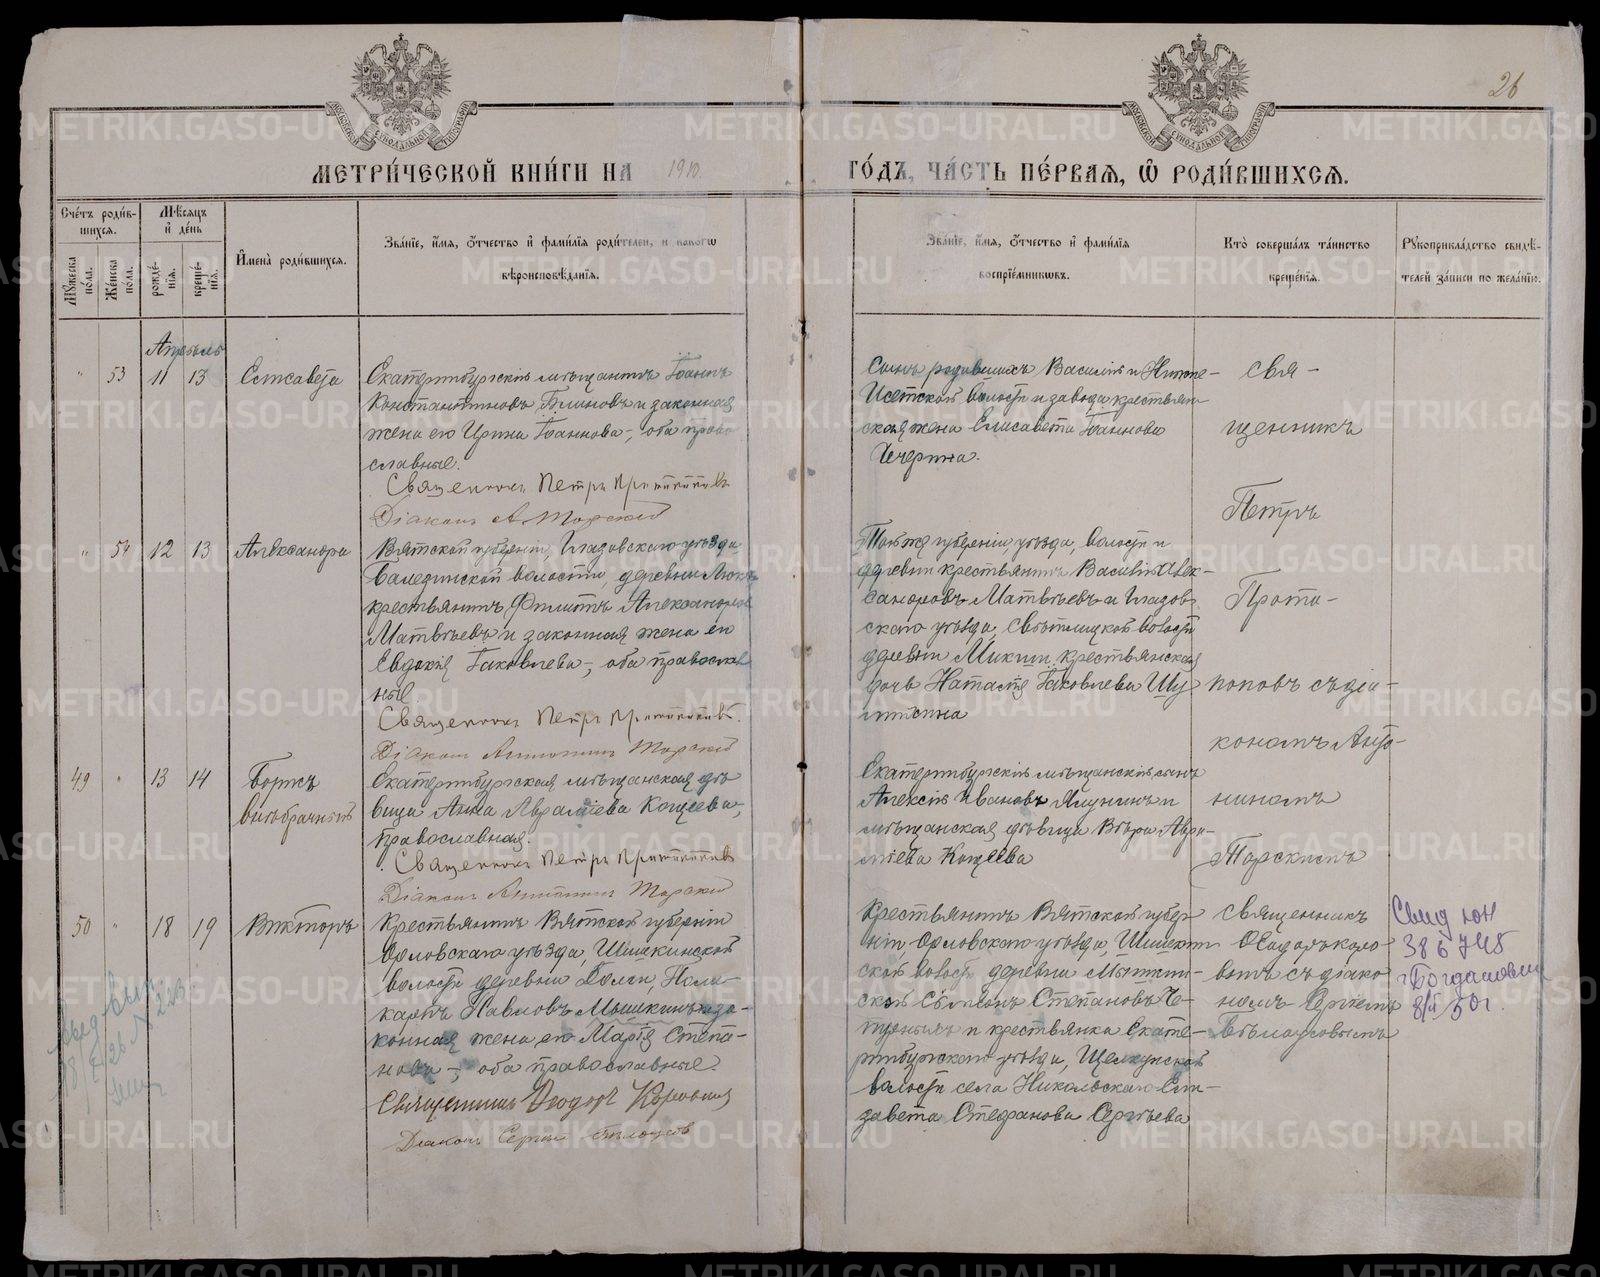 26
МЕТРИ́ЧЕСКОЙ КНИ́ГИ НА 1910 ГО́ДЪ, ЧА́СТЬ ПЕ́РВАЯ, Ѽ РОДИ́ВШИХСЯ.
Сче́тъ роди́в-
шихся.
Мѣ́сяцъ
и́ де́нь
Му́жеска
по́ла.
Же́нска
по́ла.
рожде́-
нія.
креще́-
нія.
И҆мена̀ роди́вшихся.
Зва́нїе, и҆́мя, ѻ҆́тчество и҆ фами́лїя роди́телей, и҆ какогѡ
вѣроисповѣ́данїя.
Зва́нїе, и҆́мя, ѻ҆́тчество и҆ фами́лїя
воспрїе́мниковъ.
Кто̀ соверша́лъ та́инство
креще́нїя.
Рукоприкла́дство свидѣ́-
телей за́писи по жела́нїю.
Апрѣль
" 53 11 13 Елисавета
Екатеринбургскій мѣщанинъ Іоаннъ
Константиновъ Блиновъ и законная
жена его Ирина Іоаннова, оба право
славные.
Священникъ Петръ
Діаконъ А. Торскій
Сынъ родившихъ Василій и Нижне-
Исетской волости и завода крестьян
ская жена Елисавета Іоаннова
Ичерина.
Свя-
щенникъ
Петръ
" 54 12 13 Александра
Вятской губерніи, Глазовскаго уѣзда
Балезинской волости, деревни Люкъ
крестьянинъ Филиппъ Александровъ
Матвѣевъ и законная жена его
Евдокія Іаковлева, оба православ
ные
Священникъ Петръ
Діаконъ Антонинъ Торскій
Той же губерніи, уѣзда, волости и
деревни крестьянинъ Василій Алек-
сандровъ Матвѣевъ и Глазов
скаго уѣзда, Свѣтлицкой волости
деревни крестьянская
дочь Наталія Іаковлева
Прото-
поповъ съ діа-
кономъ Анто-
49 " 13 14 Борисъ
внѣбрачный
Екатеринбургская мѣщанская дѣ
вица Анна Авраміева Кощеева,
православная.
Священникъ Петръ
Діаконъ Антонинъ Торскій
Екатеринбургскій мѣщанскій сынъ
Алексій Ивановъ и
мѣщанская дѣвица Вѣра Авра-
міева Кощеева
ниномъ
Торскимъ
50 " 18 19 Викторъ
Крестьянинъ Вятской губерніи
Орловскаго уѣзда, Шишкинской
волости деревни Поли-
карпъ Павловъ Мышкинъ и за-
конная жена его Марія Степа-
нова, оба православные.
Священникъ Ѳеодоръ Коровинъ
Діаконъ Сергій Бѣлоусовъ
Крестьянинъ Вятской губер
ніи Орловскаго уѣзда, Шишкин
ской волости деревни Мышкин-
ской Сѵмеонъ Степановъ
и крестьянка Екате-
ринбургскаго уѣзда, Щелкунской
волости села Никольскаго Ели-
завета Стефанова Сергѣева
Священникъ
Ѳеодоръ Коро-
винъ съ діако
номъ Сергіемъ
Бѣлоусовымъ
Свид ЮН
386745
г Богданович
8/II 50 г.